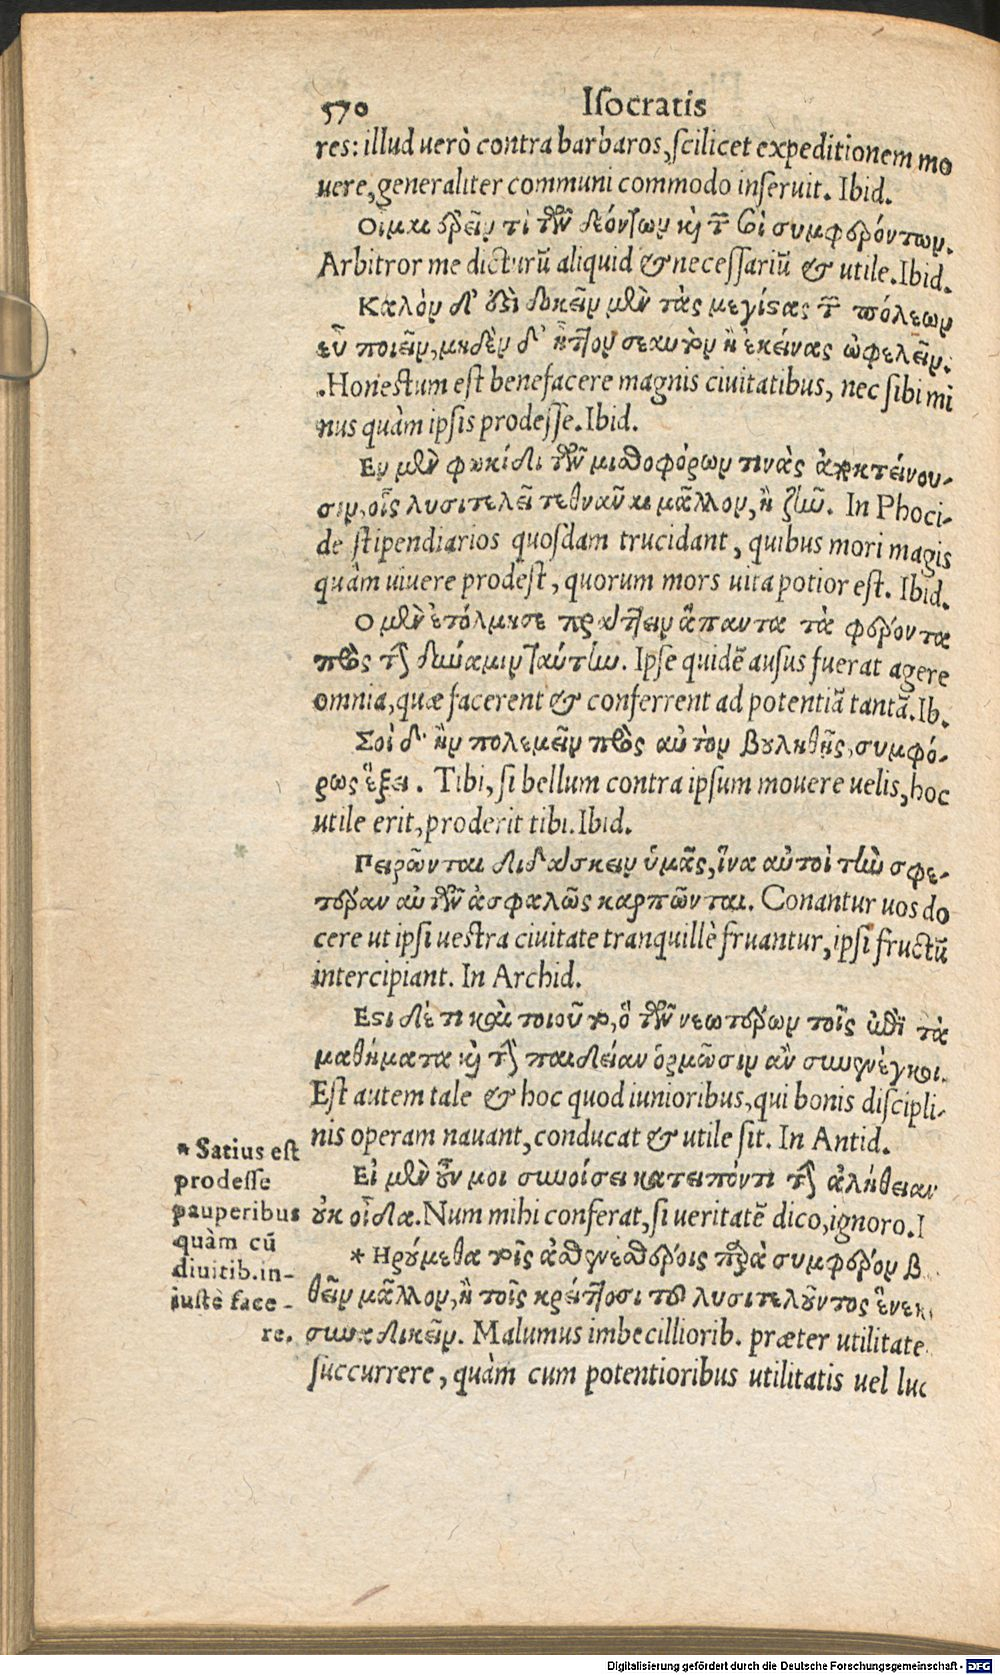 570 Isocratis
res: illud uerò contra barbaros, scilicet expeditionem mo
uere, generaliter communi commodo inseruit. Ibid.
Οἶμαι ἐρεῖν τι τῶν δεόντων καὶ τῶν συμφερόντων.
Arbitror me dicturũ aliquid & necessariũ & utile. Ibid.
Καλὸν δ' ὅτι δοκεῖν μὲν τὰς μεγίστας τῶν πόλεων
εὖ ποιεῖν, μηδὲν δ' ἧττον σεαυτὸν ἢ ἐκείνας ὠφελεῖν.
.Honestum est benefacere magnis ciuitatibus, nec sibi mi
nus quàm ipsis prodesse. Ibid.
Εν μὲν φωκίδι τῶν μισθοφόρων τινὰς ἀποκτείνου-
σιν, οἷς λυσιτελεῖ τεθνάναι μᾶλλον, ἢ ζῆν. In Phoci-
de stipendiarios quosdam trucidant, quibus mori magis
quàm uiuere prodest, quorum mors uita potior est. Ibid.
Ο μὲν ἐτόλμησε πράττειν ἅπαντα τὰ φέροντα
πρὸς τὴν δύναμιν ταύτην. Ipse quidẽ ausus fuerat agere
omnia, quæ facerent & conferrent ad potentiã tantã. Ib.
Σοὶ δ' ἢν πολεμεῖν πρὸς αὐτὸν βουληθῇς, συμφό-
ρως ἕξει. Tibi, si bellum contra ipsum mouere uelis, hoc
utile erit, proderit tibi. Ibid.
Πειρῶνται διδάσκειν ὑμᾶς, ἵνα αὐτοὶ τὴν σφε-
τέραν αὐτῶν ἀσφαλῶς καρπῶνται. Conantur uos do
cere ut ipsi uestra ciuitate tranquillè fruantur, ipsi fructũ
intercipiant. In Archid.
Εστι δέ τι καὶ τοιοῦτον, ὃ τῶν νεωτέρων τοῖς ἐπὶ τὰ
μαθήματα καὶ τὴν παιδείαν ὁρμῶσιν ἂν συνενέγκοι.
Est autem tale & hoc quod iunioribus, qui bonis discipli-
nis operam nauant, conducat & utile sit. In Antid.
Εἰ μὲν οὖν μοι συνοίσει κατειπόντι τὴν ἀλήθειαν
οὐκ οἶδα. Num mihi conferat, si ueritatẽ dico, ignoro. I
* Ηρούμεθα τοῖς ἀσθενεστέροις παρὰ συμφέρον β
θεῖν μᾶλλον, ἢ τοῖς κρείττοσι τοῦ λυσιτελοῦντος ἕνεκ
συναδικεῖν. Malumus imbecilliorib. præter utilitate
succurrere, quàm cum potentioribus utilitatis uel luc
* Satius est
prodesse
pauperibus
quàm cũ
diuitib. in-
iustè face-
re.
Digitalisierung gefördert durch die Deutsche Forschungsgemeinschaft - DFG